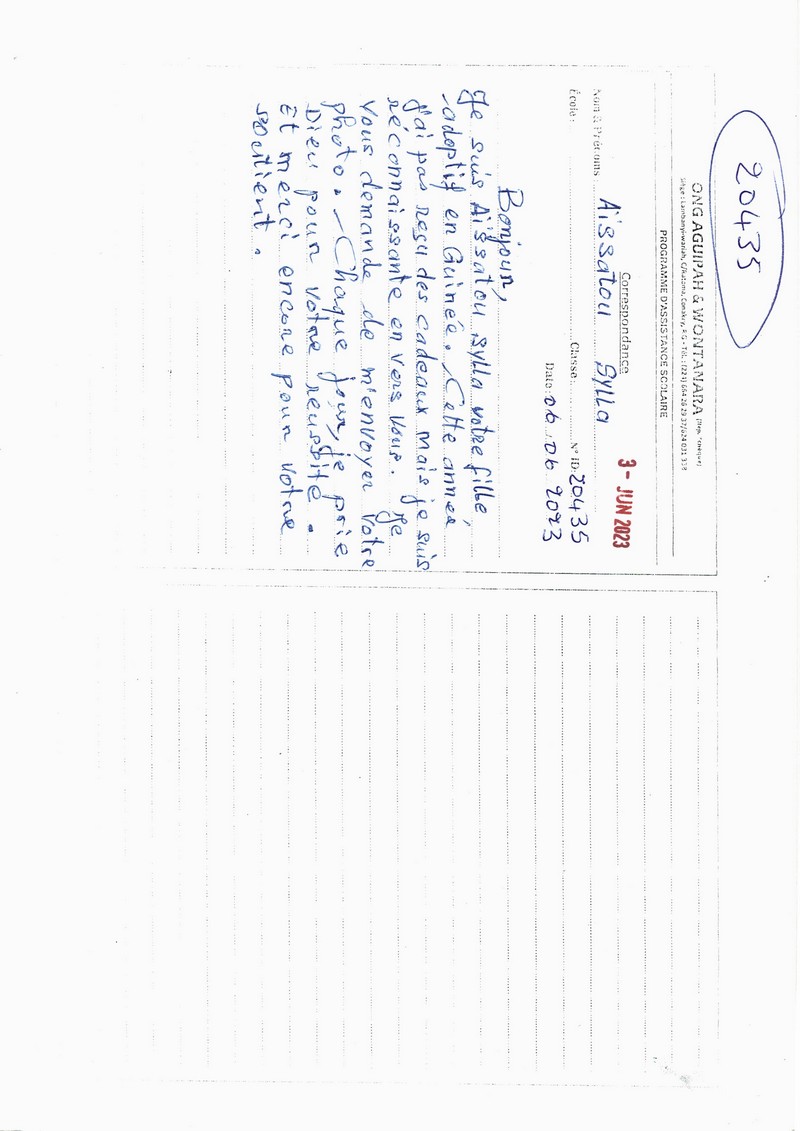 20435
ONG AGUIPAH & WONTANARA
PROGRAMME D'ASSISTANCE SCOLAIRE
Correspondance
3 - JUN 2023
Nom & Prénoms : Aissatou Sylla N° ID: 20435
École : Classe : Date: 06 06 2023
Bonjour,
Je suis Aïssatou Sylla votre fille,
adoptif en Guinée. Cette année
j'ai pas reçu des cadeaux mais je suis
réconnaissante en vers vous. Je
vous demande de m'envoyer votre
photo. Chaque jour, je prie
Dieu pour votre reussite.
Et merci encore pour votre
soutient.